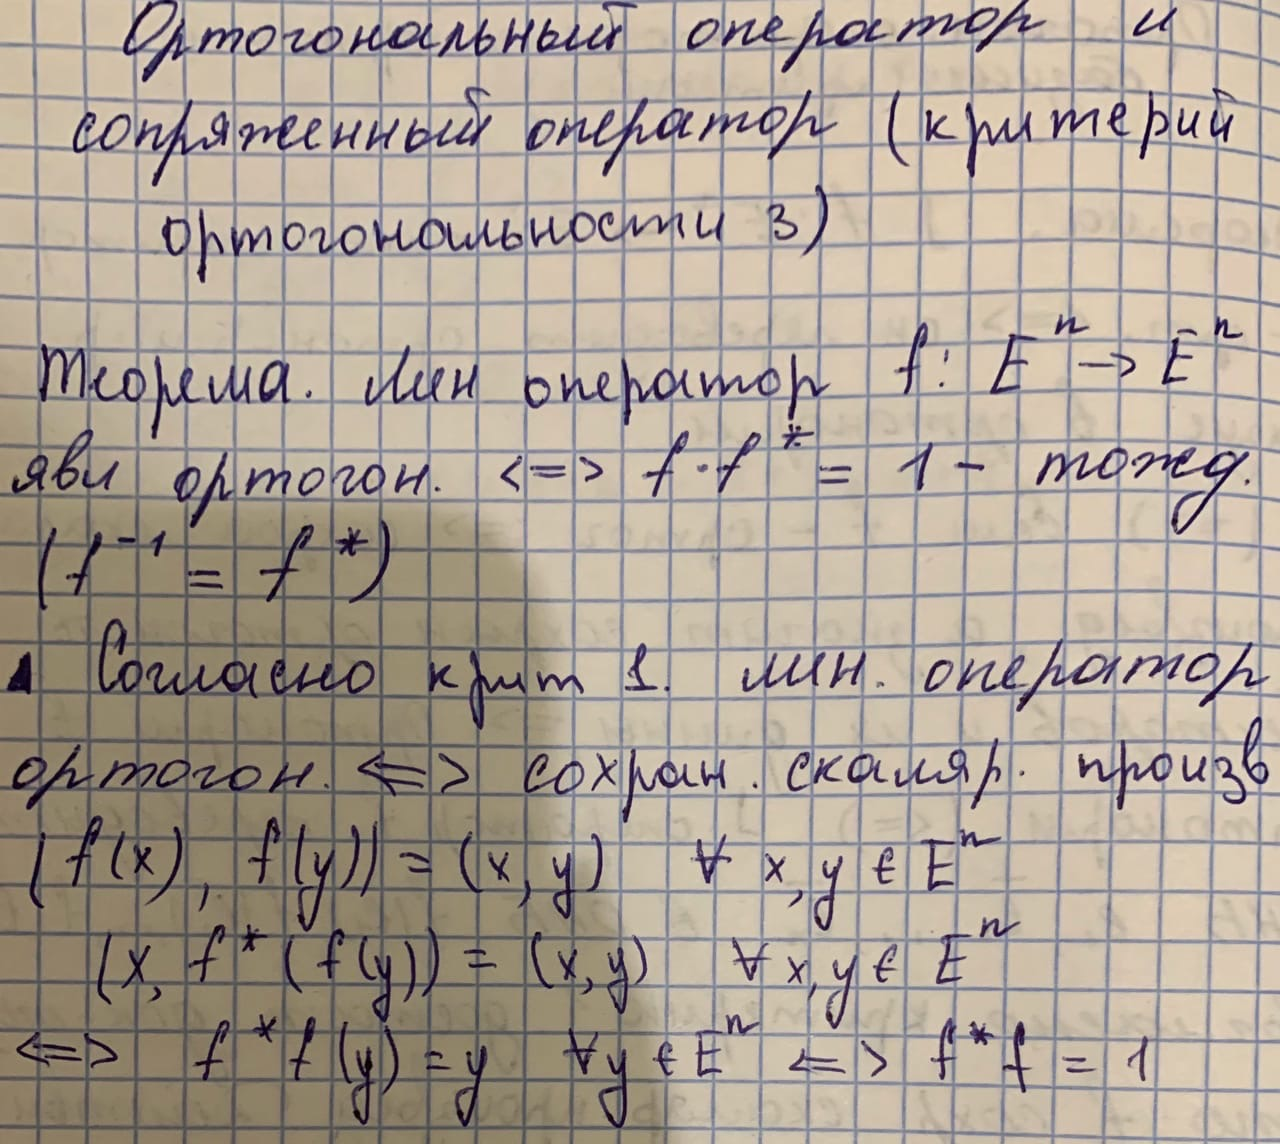 Ортогональный оператор и
сопряженный оператор (критерий
ортогональности 3)
Теорема. Лин оператор f: Eⁿ → Eⁿ
явл ортогон. <=> f · f* = 1 - тожд.
(f⁻¹ = f*)
▲ Согласно крит 1. лин. оператор
ортогон. <=> сохран. скаляр. произв
(f(x), f(y)) = (x, y) ∀ x, y ∈ Eⁿ
(x, f*(f(y)) = (x, y) ∀ x, y ∈ Eⁿ
<=> f*f(y) = y ∀y ∈ Eⁿ <=> f*f = 1